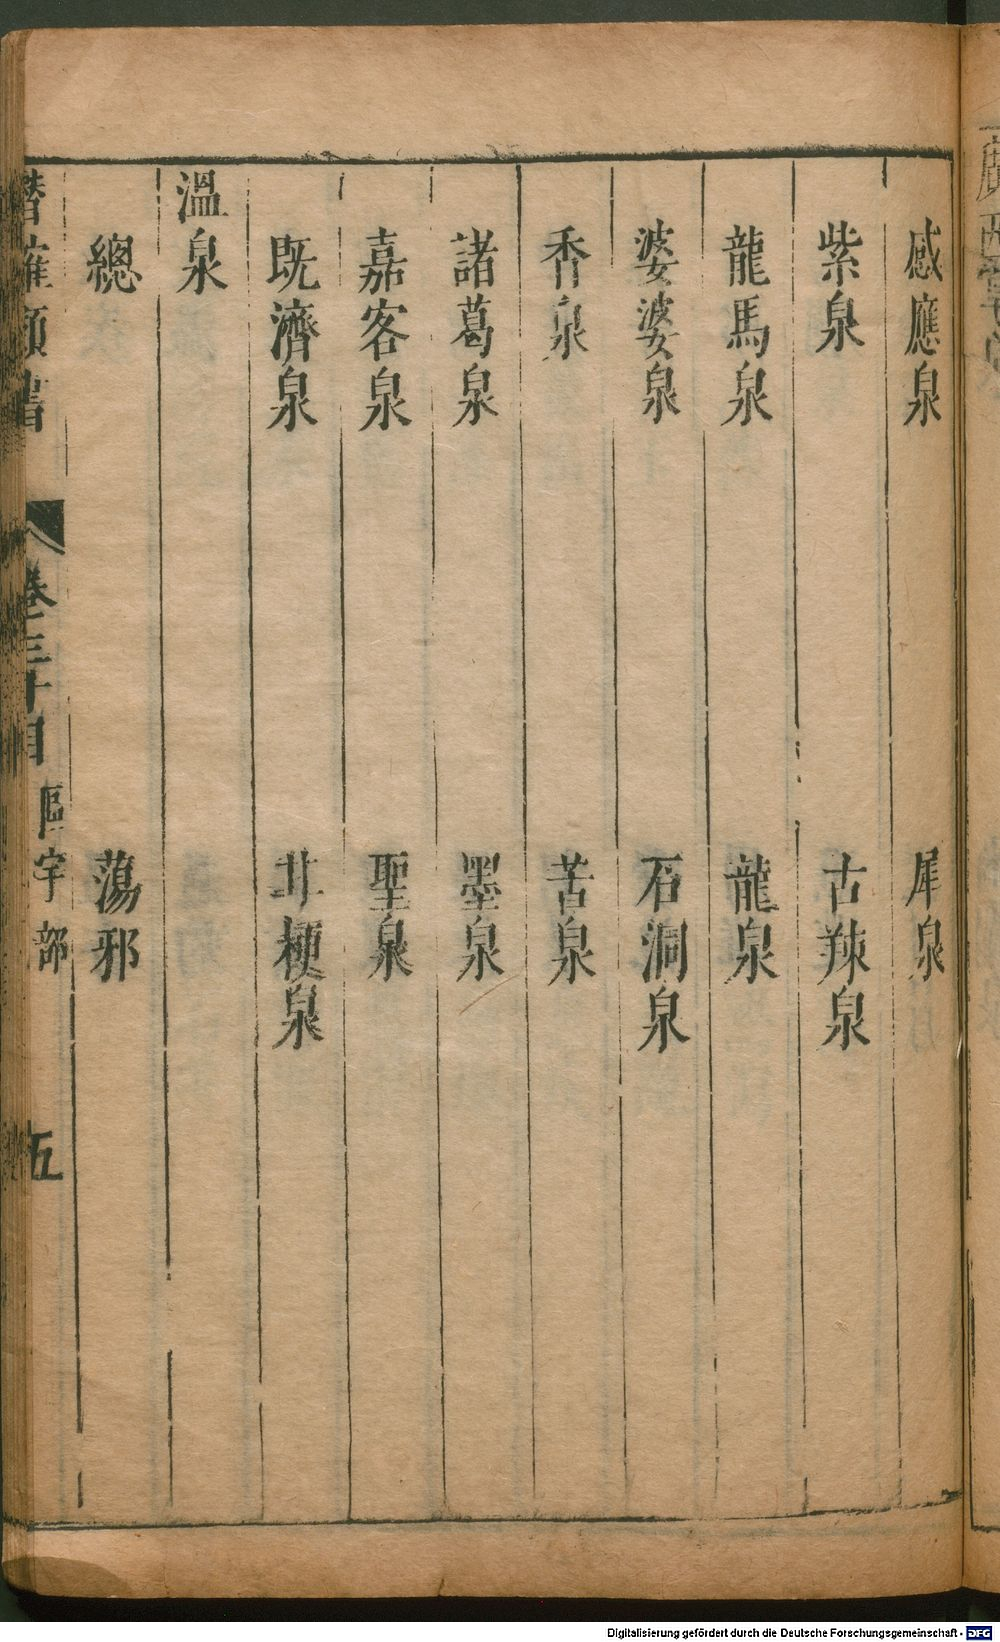 感應泉 犀泉
紫泉 古辣泉
龍馬泉 龍泉
婆婆泉 石洞泉
香泉 苦泉
諸葛泉 墨泉
嘉客泉 聖泉
既濟泉 井梗泉
溫泉
總 蕩邪
潛確類書 卷三十目 區宇部 五
Digitalisierung gefördert durch die Deutsche Forschungsgemeinschaft - DFG